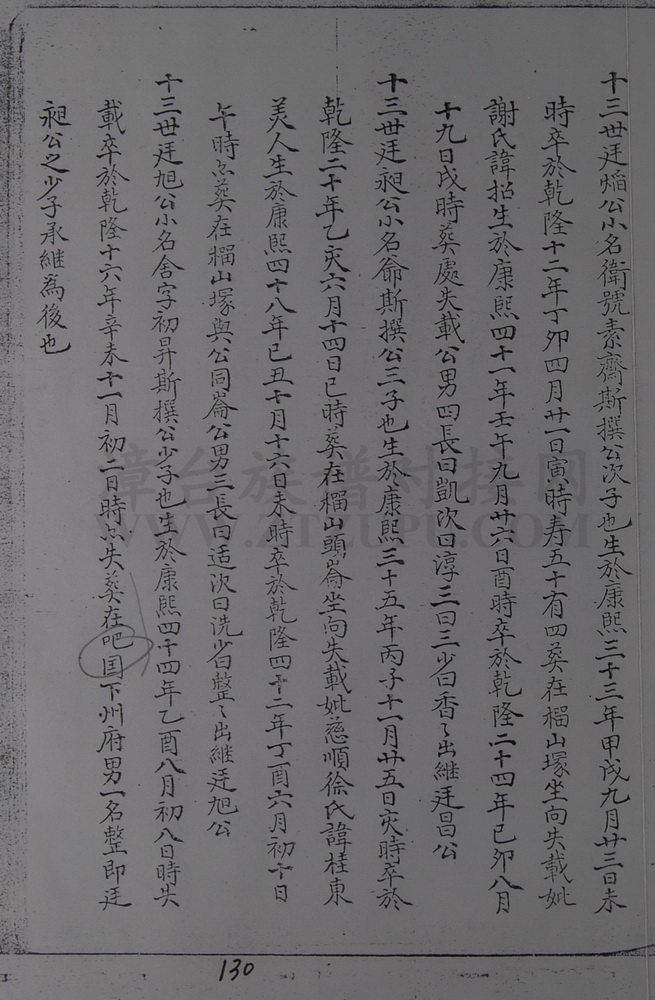 十三世廷焰公小名衛號素齋斯撰公次子也生於康熙三十三年甲戌九月廿三日未
時卒於乾隆十二年丁卯四月廿一日寅時寿五十有四葬在榴山塚坐向失載妣
謝氏諱招生於康熙四十一年壬午九月廿六日酉時卒於乾隆二十四年己卯八月
十九日戌時葬處失載公男四長曰凱次曰淳三曰三少曰香〻出継廷昌公
十三世廷昶公小名爺斯撰公三子也生於康熙三十五年丙子十一月廿五日亥時卒於
乾隆二十年乙亥六月十四日巳時葬在榴山頭崙坐向失載妣慈順徐氏諱桂東
美人生於康熙四十八年己丑十月十六日未時卒於乾隆四十二年丁酉六月初十日
午時葬在榴山塚與公同崙公男三長曰适次曰洗少曰整〻出継廷旭公
十三世廷旭公小名舍字初昇斯撰公少子也生於康熙四十四年乙酉八月初八日時失
載卒於乾隆十六年辛未十一月初二日時失葬在吧国下州府男一名整即廷
昶公之少子承継為後也
漳台族谱对接网
WWW.ZTZUPU.COM
130